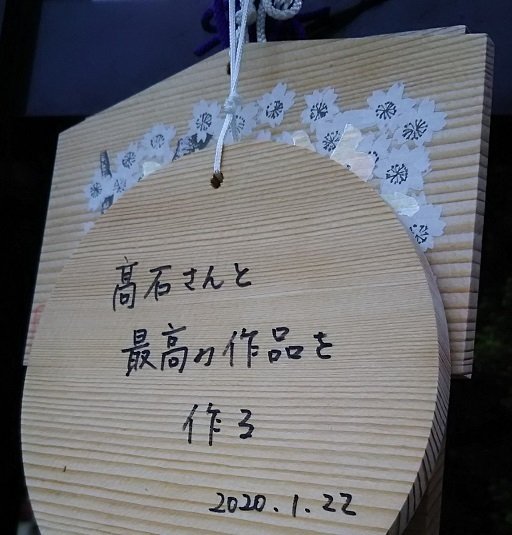 髙石さんと
最高の作品を
作る
2020.1.22